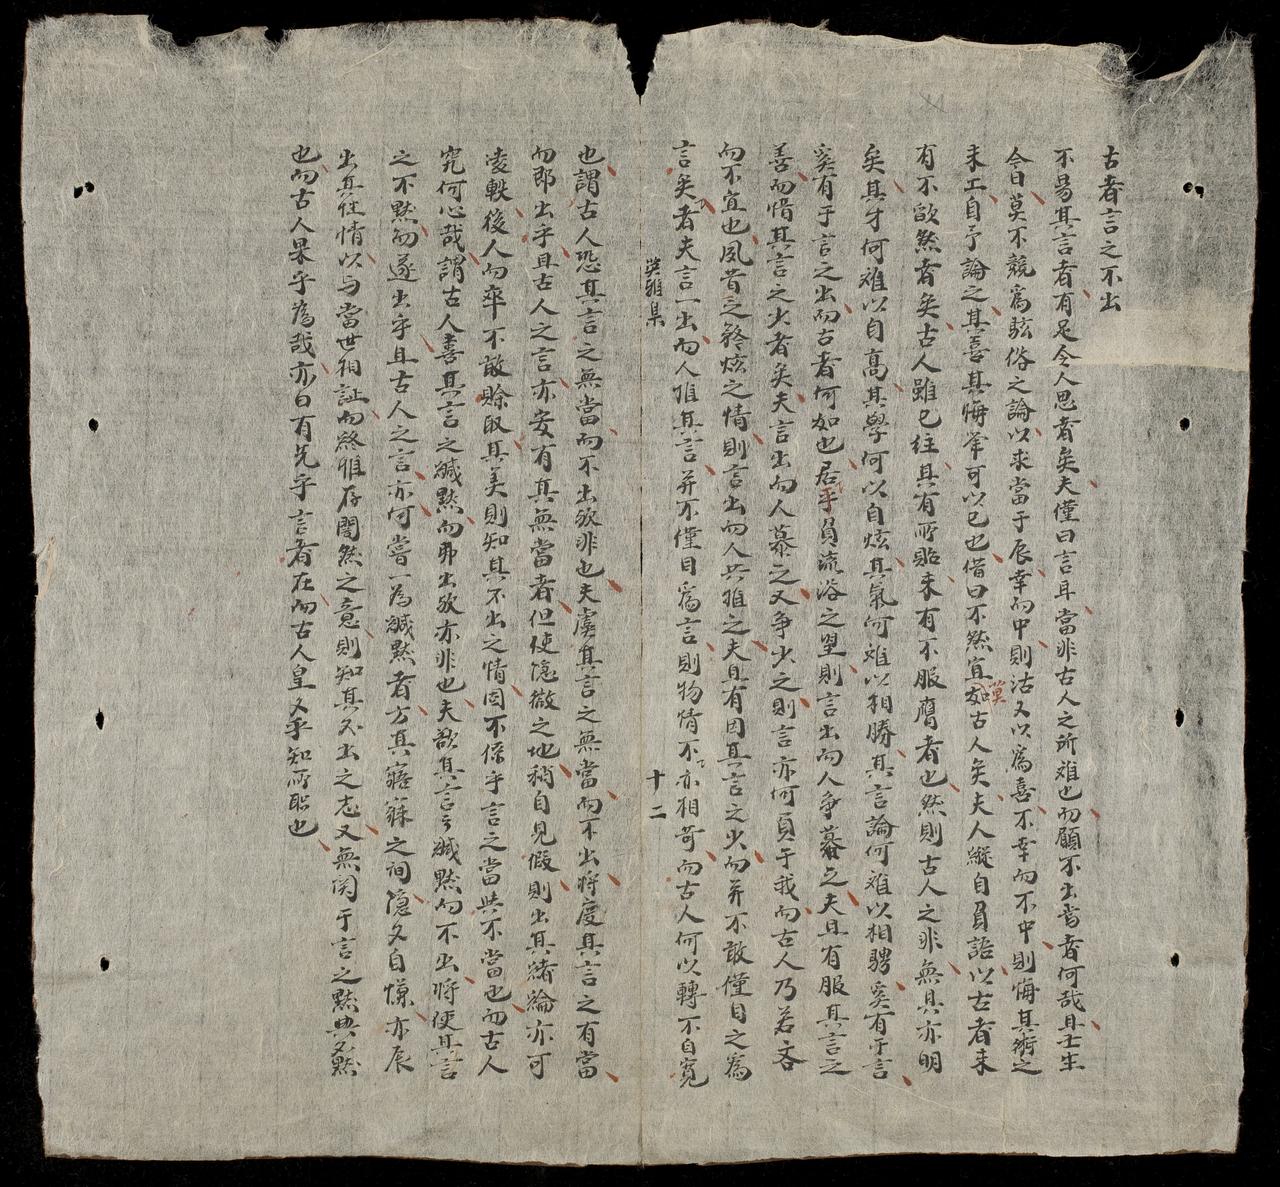 古者言之不出
不易其言者有足令人思者矣夫僅曰言耳當非古人之所难也而顧不出焉者何哉且士生
今日莫不競為駭俗之論以求當于辰幸而中則沾又以為喜不幸而不中則悔其術之
未工自予論之其喜其悔举可以已也借曰不然宜如古人矣夫人縱自負語以古者来
有不欿然者矣古人雖已往其有所貽来有不服膺者也然則古人之非無具亦明
矣其才何难以自高其學何以自炫其氣何难以相勝其言論何难以相騁奚有于言
奚有于言之出而古者何如也居乎負流俗之望則言出而人争慕之夫且有服其言之
善而惜其言之少者矣夫言出而人慕之又争少之則言亦何負于我而古人乃若吝
而不宜也夙昔之矜炫之情則言出而人共推之夫且有因其言之少而并不敢僅目之為
言矣者夫言一出而人推其言并不僅目為言則物情不亦相苛而古人何以轉不自寬
集
十二
也謂古人恐其言之無當而不出欤非也夫虞其言之無當而不出将度其言之有當
而即出乎且古人之言亦安有其無當者但使隐微之地稍自見假則出其緒論亦可
凌軼後人而卒不敢賒取其美則知其不出之情固不係乎言之當與不當也而古人
究何心哉謂古人喜其言之缄默而弗出欤亦非也夫欲其言之缄默而不出将使其言
之不默而遂出乎且古人之言亦何嘗一為缄默者方其寤寐之间隐久自惧亦辰
出其性情以与當世相証而終惟存闇然之意則知其不出之志又無関于言之默與不默
也而古人果乎為哉亦曰有先乎言者在而古人皇又乎知所耻也